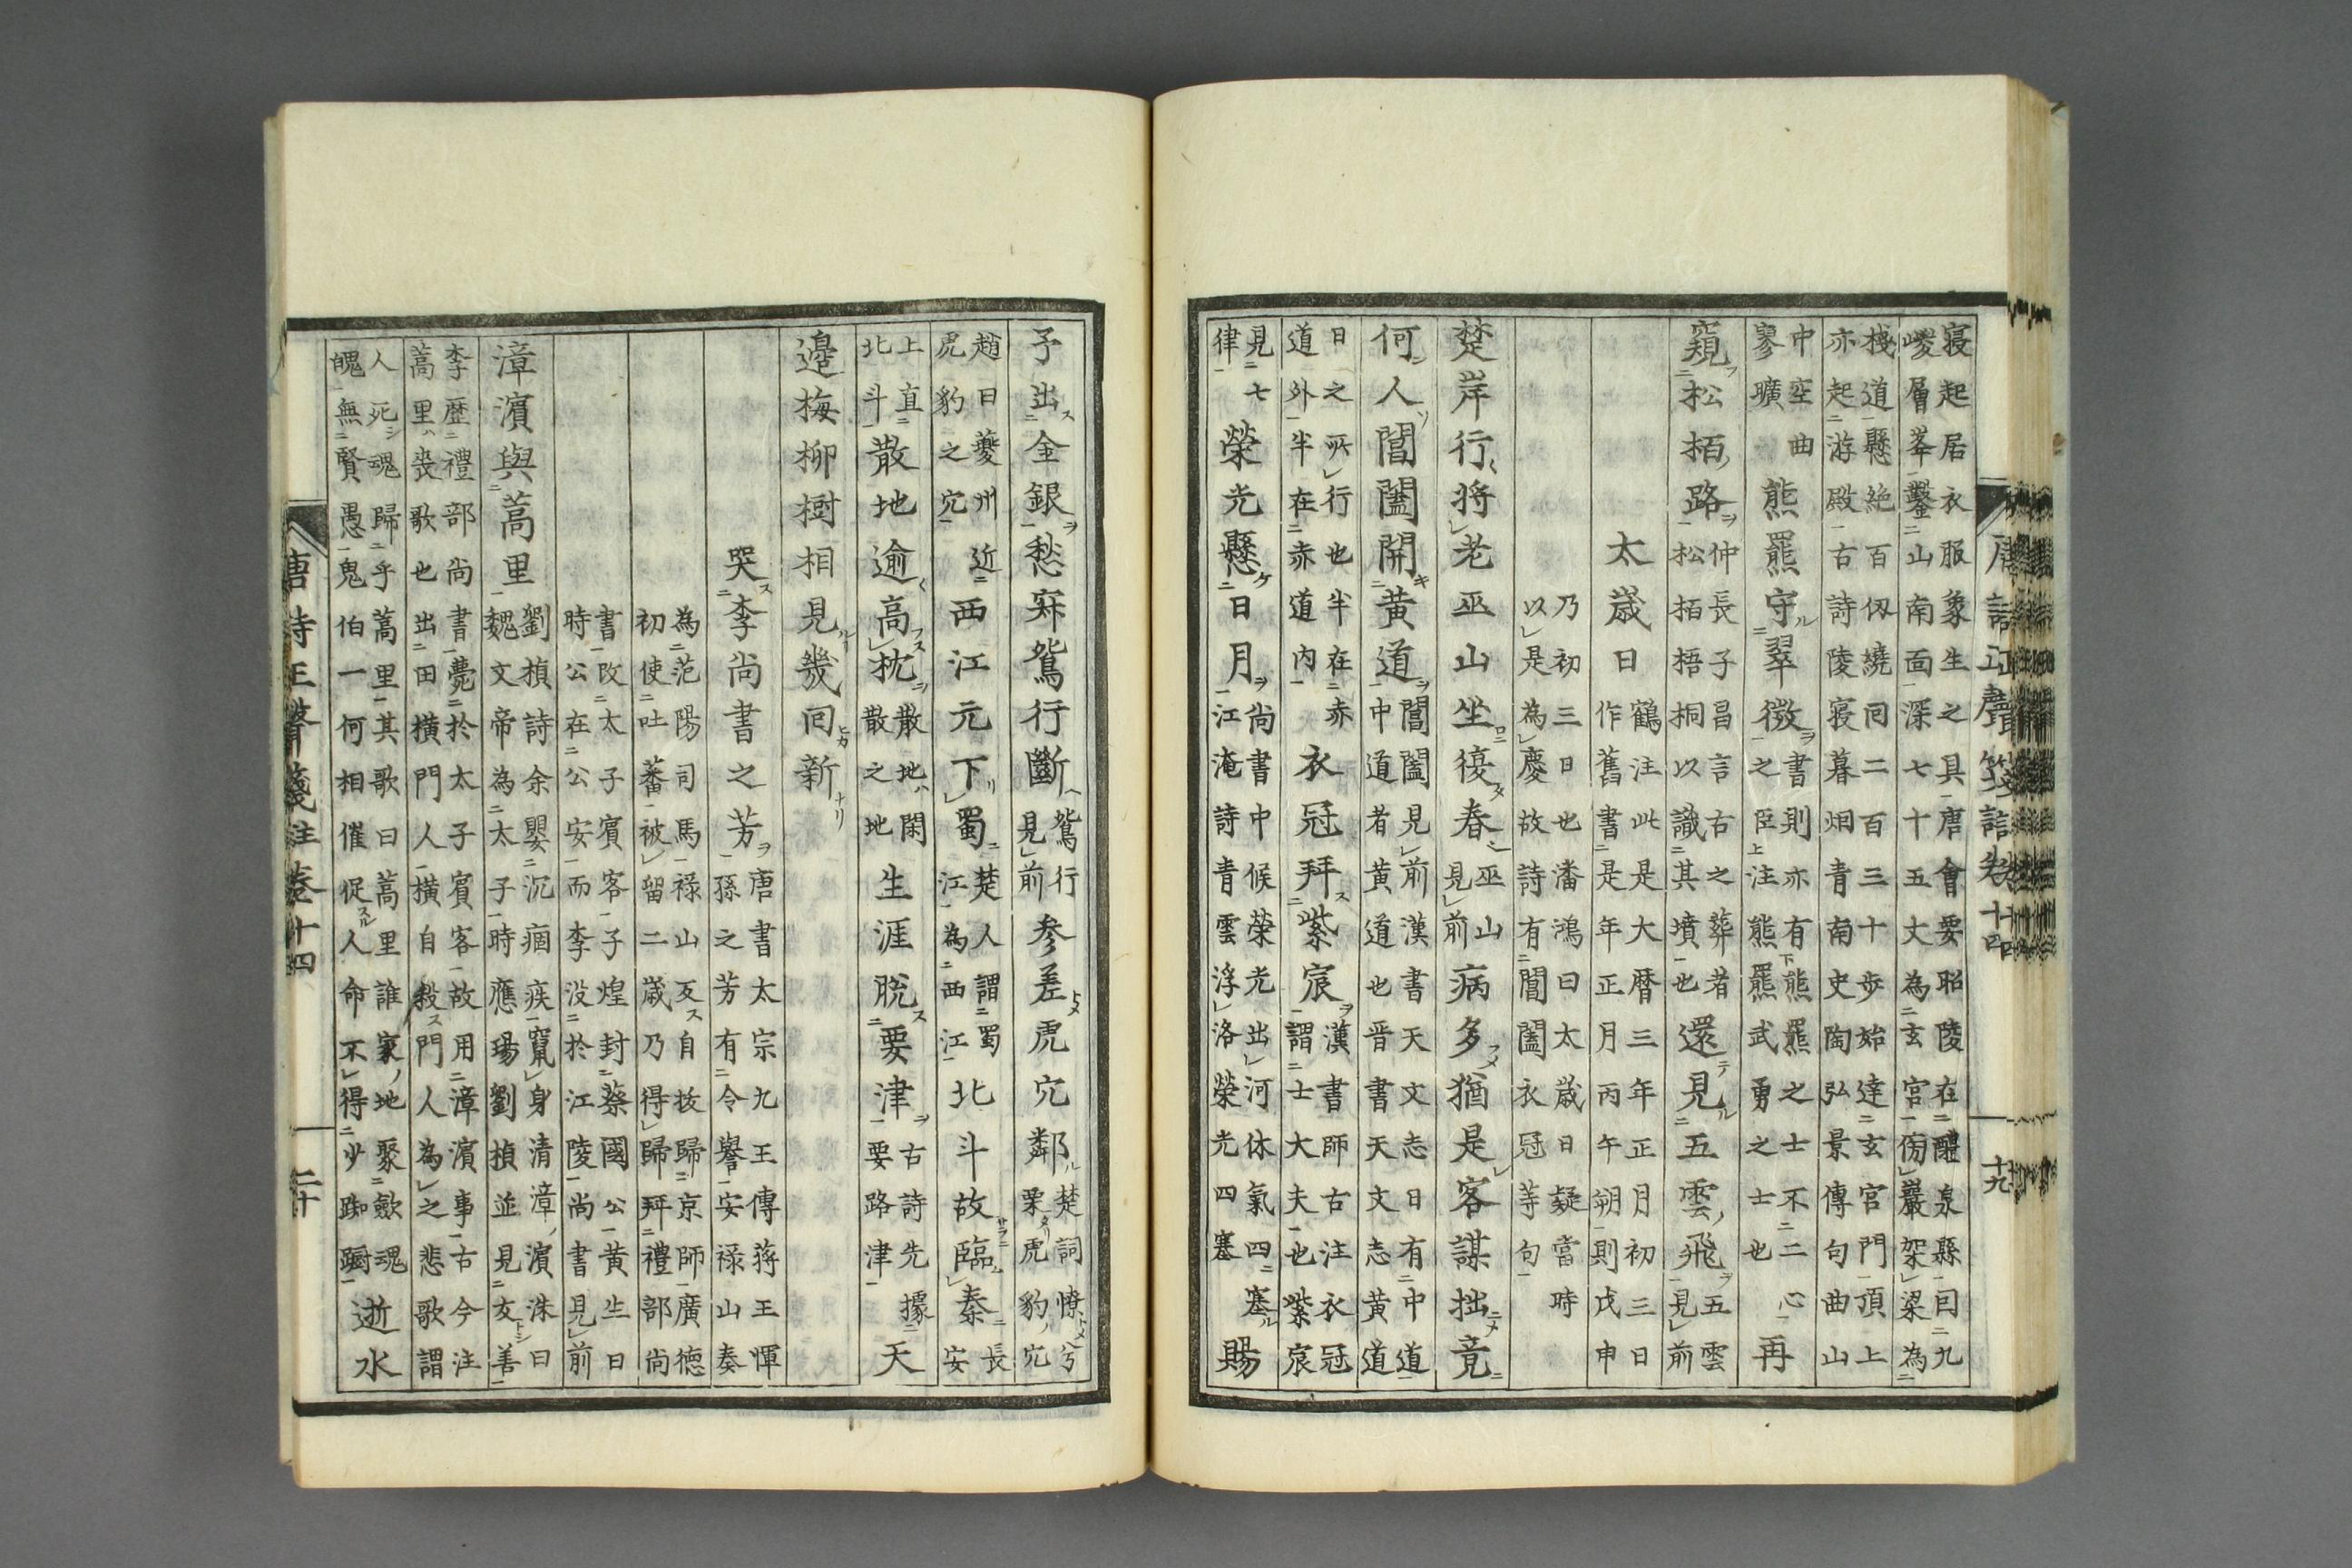 寢起居衣服象生之具唐會要昭陵在醴泉縣囙九
嵕層峯鑿山南面深七十五丈為玄宮傍巖架梁為
棧道懸絶百仭繞囘二百三十步始達玄宮門頂上
亦起游殿古詩陵寢暮烟青南史陶弘景傳句曲山
中空曲
寥曠
熊羆守翠微
書則亦有熊羆之士不二心
之臣注熊羆武勇之士也
再
窺松栢路
仲長子昌言古之葬者
松栢梧桐以識其墳也
還見五雲飛
五雲
見前
太歲日
鶴注此是大曆三年正月初三日
作舊書是年正月丙午朔則戊申
乃初三日也潘鴻曰太歲日疑當時
以是為慶故詩有閶闔衣冠等句
楚岸行將老巫山坐復春
巫山
見前
病多猶是客謀拙竟
何人閶闔開黃道
閶闔見前漢書天文志日有中道
中道者黃道也晋書天文志黃道
日之所行也半在赤
道外半在赤道內
衣冠拜紫宸
漢書師古注衣冠
謂士大夫也紫宸
見七
律
榮光懸日月
尚書中候榮光出河休氣四塞
江淹詩青雲浮洛榮光四塞
賜
予出金銀愁寂鴛行斷
鴛行
見前
參差虎穴鄰
楚詞憭兮
栗虎豹穴
趙曰夔州近
虎豹之穴
西江元下蜀
楚人謂蜀
江為西江
北斗故臨秦
長
安
上直
北斗
散地逾高枕
散地閑
散之地
生涯脫要津
古詩先據
要路津
天
邊梅柳樹相見幾囘新
哭李尚書之芳
唐書太宗九王傳蔣王惲
孫之芳有令譽安祿山奏
為范陽司馬祿山反自拔歸京師廣德
初使吐蕃被留二歲乃得歸拜禮部尚
書改太子賓客子煌封蔡國公黃生曰
時公在公安而李沒於江陵尚書見前
漳濱與蒿里
劉楨詩余嬰沉痼疾竄身清漳濱洙曰
魏文帝為太子時應瑒劉楨並見友善
李歷禮部尚書薨於太子賓客故用漳濱事古今注
蒿里喪歌也出田橫門人橫自殺門人為之悲歌謂
人死魂歸乎蒿里其歌曰蒿里誰家地聚歛魂
魄無賢愚鬼伯一何相催促人命不得少踟躕
逝水
唐詩正聲箋註卷十四
十九
唐詩正聲箋註卷十四
二十